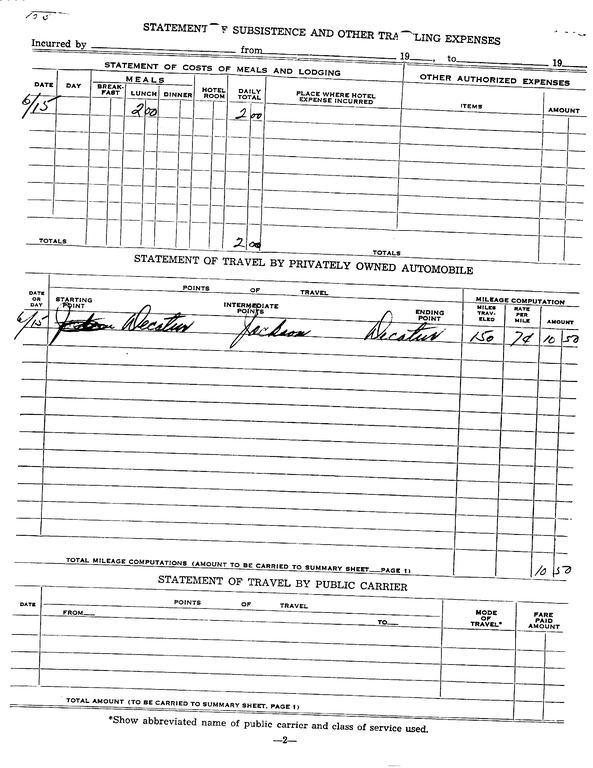 STATEMENT OF SUBSISTENCE AND OTHER TRAVELING EXPENSES
Incurred by from 19 , to 19
STATEMENT OF COSTS OF MEALS AND LODGING
OTHER AUTHORIZED EXPENSES
DATE DAY MEALS BREAK-FAST LUNCH DINNER HOTEL ROOM DAILY TOTAL PLACE WHERE HOTEL EXPENSE INCURRED ITEMS AMOUNT
6/15 2 00 2 00
TOTALS 2 00 TOTALS
STATEMENT OF TRAVEL BY PRIVATELY OWNED AUTOMOBILE
DATE OR DAY POINTS OF TRAVEL MILEAGE COMPUTATION
STARTING POINT INTERMEDIATE POINTS ENDING POINT MILES TRAV-ELED RATE PER MILE AMOUNT
6/15 Decatur Jackson Decatur 150 7¢ 10 50
TOTAL MILEAGE COMPUTATIONS (AMOUNT TO BE CARRIED TO SUMMARY SHEET—PAGE 1) 10 50
STATEMENT OF TRAVEL BY PUBLIC CARRIER
DATE POINTS OF TRAVEL MODE OF TRAVEL* FARE PAID AMOUNT
FROM— TO—
TOTAL AMOUNT (TO BE CARRIED TO SUMMARY SHEET, PAGE 1)
*Show abbreviated name of public carrier and class of service used.
—2—